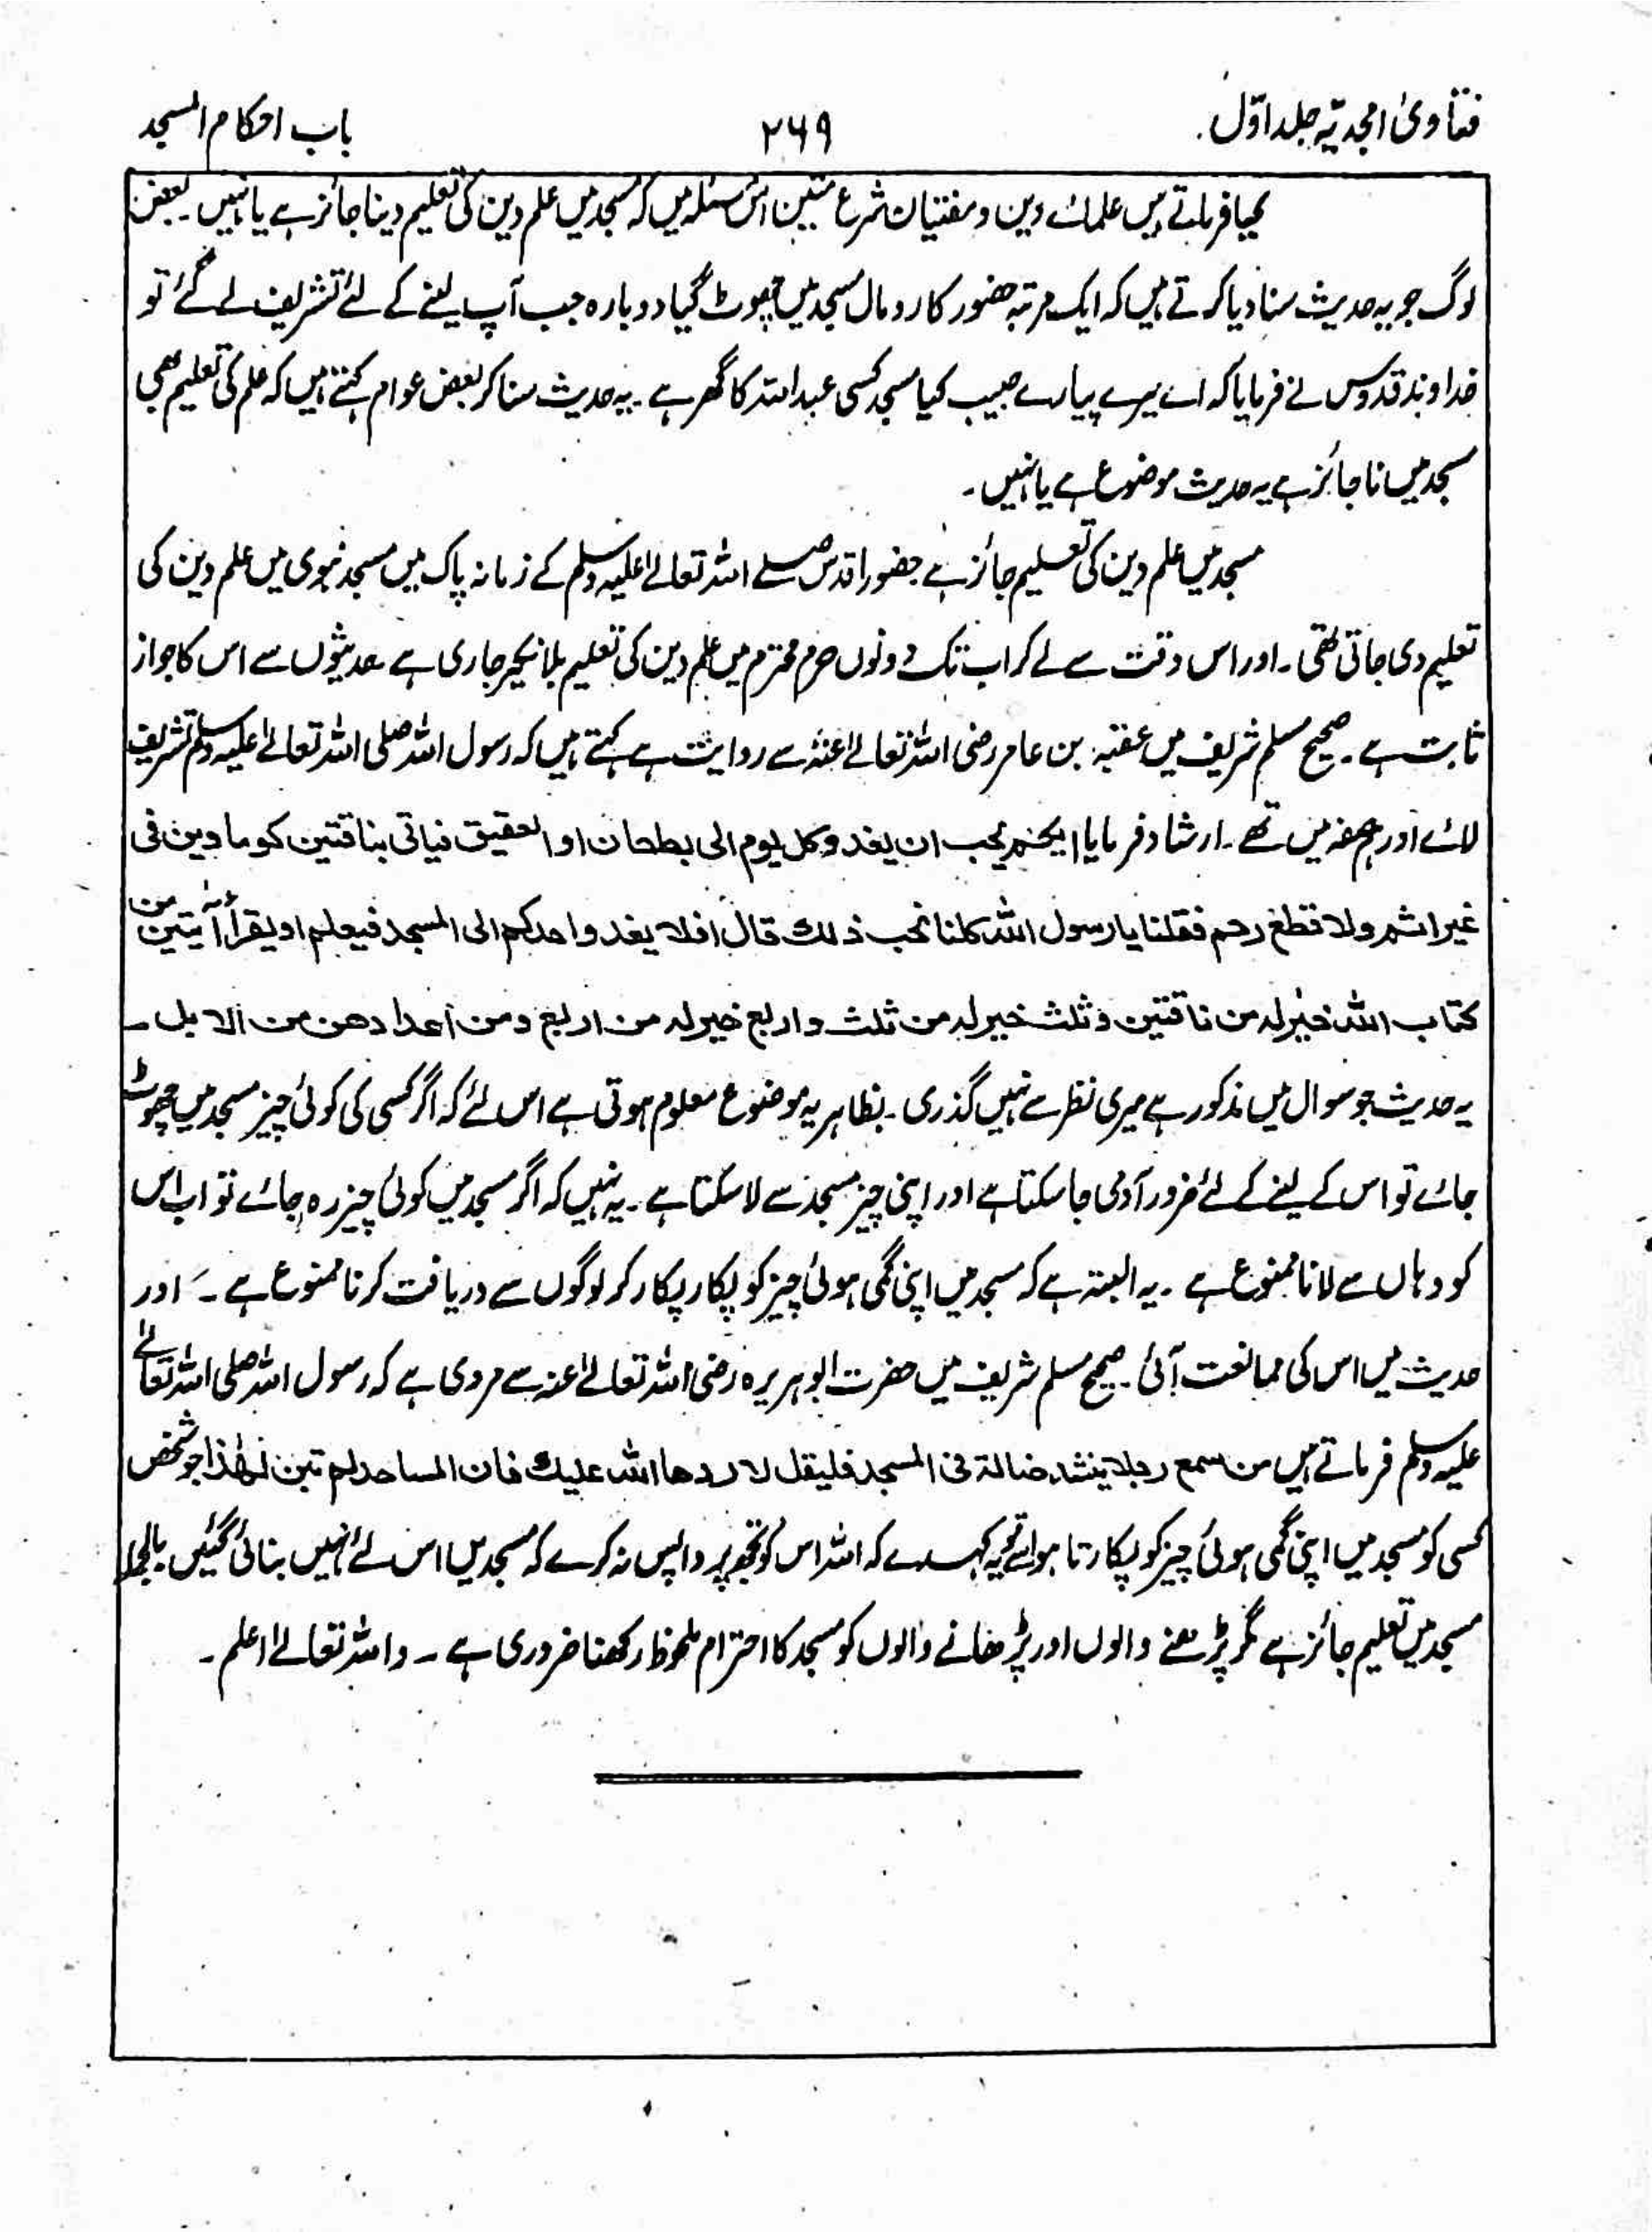 فتاویٰ امجدیہ جلد اوّل.
۲۶۹
باب احکام المسجد
کیا فرماتے ہیں علمائے دین و مفتیان شرع متین اس مسئلہ میں کہ مسجد میں علم دین کی تعلیم دینا جائز ہے یا نہیں۔ بعض
لوگ جو یہ حدیث سنا دیا کرتے ہیں کہ ایک مرتبہ حضور کا رومال مسجد میں چھوٹ گیا دوبارہ جب آپ لینے کے لئے تشریف لے گئے تو
خداوند قدوس نے فرمایا کہ اے میرے پیارے حبیب کیا مسجد کسی عبد اللہ کا گھر ہے۔ یہ حدیث سنا کر بعض عوام کہتے ہیں کہ علم کی تعلیم بھی
مسجد میں ناجائز ہے یہ حدیث موضوع ہے یا نہیں۔
مسجد میں علم دین کی تعلیم جائز ہے حضور اقدس صلے اللہ تعالےٰ علیہ وسلم کے زمانہ پاک میں مسجد نبوی میں علم دین کی
تعلیم دی جاتی تھی۔ اور اس وقت سے لے کر اب تک دونوں حرم محترم میں علم دین کی تعلیم بلا نکیر جاری ہے حدیثوں سے اس کا جواز
ثابت ہے۔ صحیح مسلم شریف میں عقبہ بن عامر رضی اللہ تعالےٰ عنہٗ سے روایت ہے کہتے ہیں کہ رسول اللہ صلی اللہ تعالےٰ علیہ وسلم تشریف
لائے اور ہم صفہ میں تھے۔ ارشاد فرمایا ایکم یحب ان یغدو کل یوم الی بطحان او العقیق فیاتی بناقتین کوماوین فی
غیر اثم ولا قطع رحم فقلنا یا رسول اللہ کلنا نحب ذلک قال افلا یغدوا احدکم الی المسجد فیعلم او یقرأ آیتین من
کتاب اللہ خیر لہ من ناقتین وثلث خیر لہ من ثلث واربع خیر لہ من اربع ومن اعدادھن من الابل۔
یہ حدیث جو سوال میں مذکور ہے میری نظر سے نہیں گذری۔ بظاہر یہ موضوع معلوم ہوتی ہے اس لئے کہ اگر کسی کی کوئی چیز مسجد میں چھوٹ
جائے تو اس کے لینے کے لئے ضرور آدمی جا سکتا ہے اور اپنی چیز مسجد سے لا سکتا ہے۔ یہ نہیں کہ اگر مسجد میں کوئی چیز رہ جائے تو اب اس
کو وہاں سے لانا ممنوع ہے۔ یہ البتہ ہے کہ مسجد میں اپنی گمی ہوئی چیز کو پکار پکار کر لوگوں سے دریافت کرنا ممنوع ہے۔ اور
حدیث میں اس کی ممانعت آئی۔ صحیح مسلم شریف میں حضرت ابو ہریرہ رضی اللہ تعالےٰ عنہ سے مروی ہے کہ رسول اللہ صلی اللہ تعالےٰ
علیہ وسلم فرماتے ہیں من سمع رجلا ینشد ضالۃ فی المسجد فلیقل لا ردھا اللہ علیک فان المساجد لم تبن لھٰذا جو شخص
کسی کو مسجد میں اپنی گمی ہوئی چیز کو پکارتا ہوا سنے تو یہ کہدے کہ اللہ اس کو تجھ پر واپس نہ کرے کہ مسجدیں اس لئے نہیں بنائی گئیں بالجملہ
مسجد میں تعلیم جائز ہے مگر پڑھنے والوں اور پڑھانے والوں کو مسجد کا احترام ملحوظ رکھنا ضروری ہے۔ واللہ تعالےٰ اعلم۔